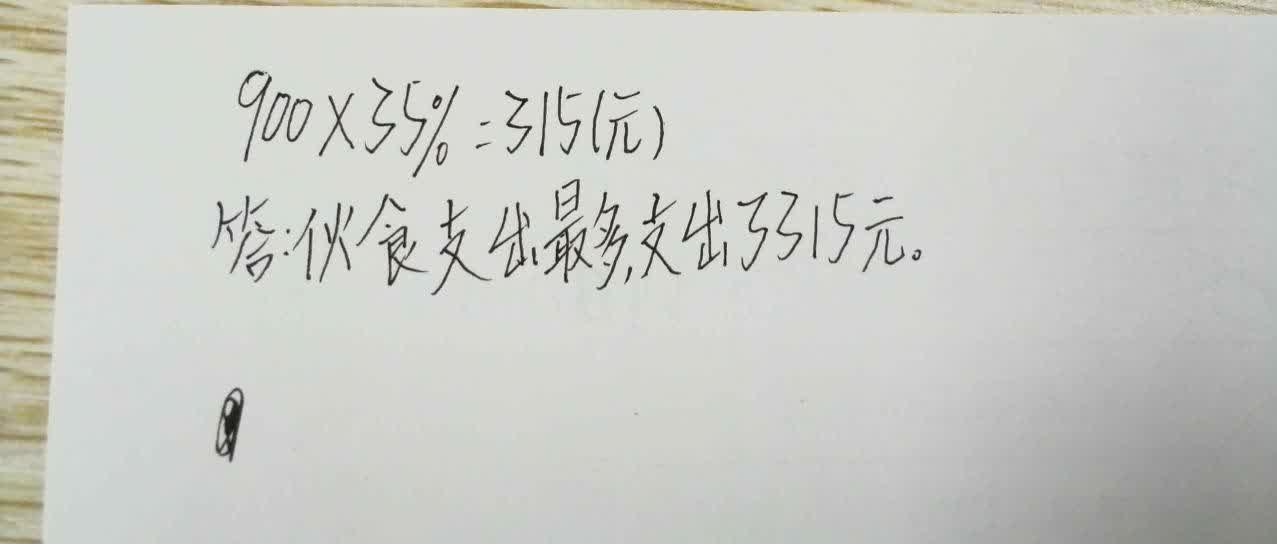 900×35%=315(元)
答:伙食支出最多,支出了315元。